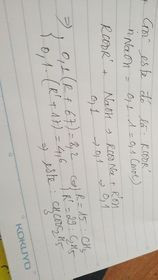 Gọi este đó là RCOOR'
nNaOH = 0,1 . 1 = 0,1 (mol)
RCOOR' + NaOH → RCOONa + R'OH
0,1 → 0,1 → 0,1
⇒ { 0,1 (R + 67) = 8,2 ⇔ { R = 15 : CH₃
0,1 . (R' + 17) = 4,6 R' = 29 : C₂H₅
⇒ este : CH₃COOC₂H₅
KOKUYO